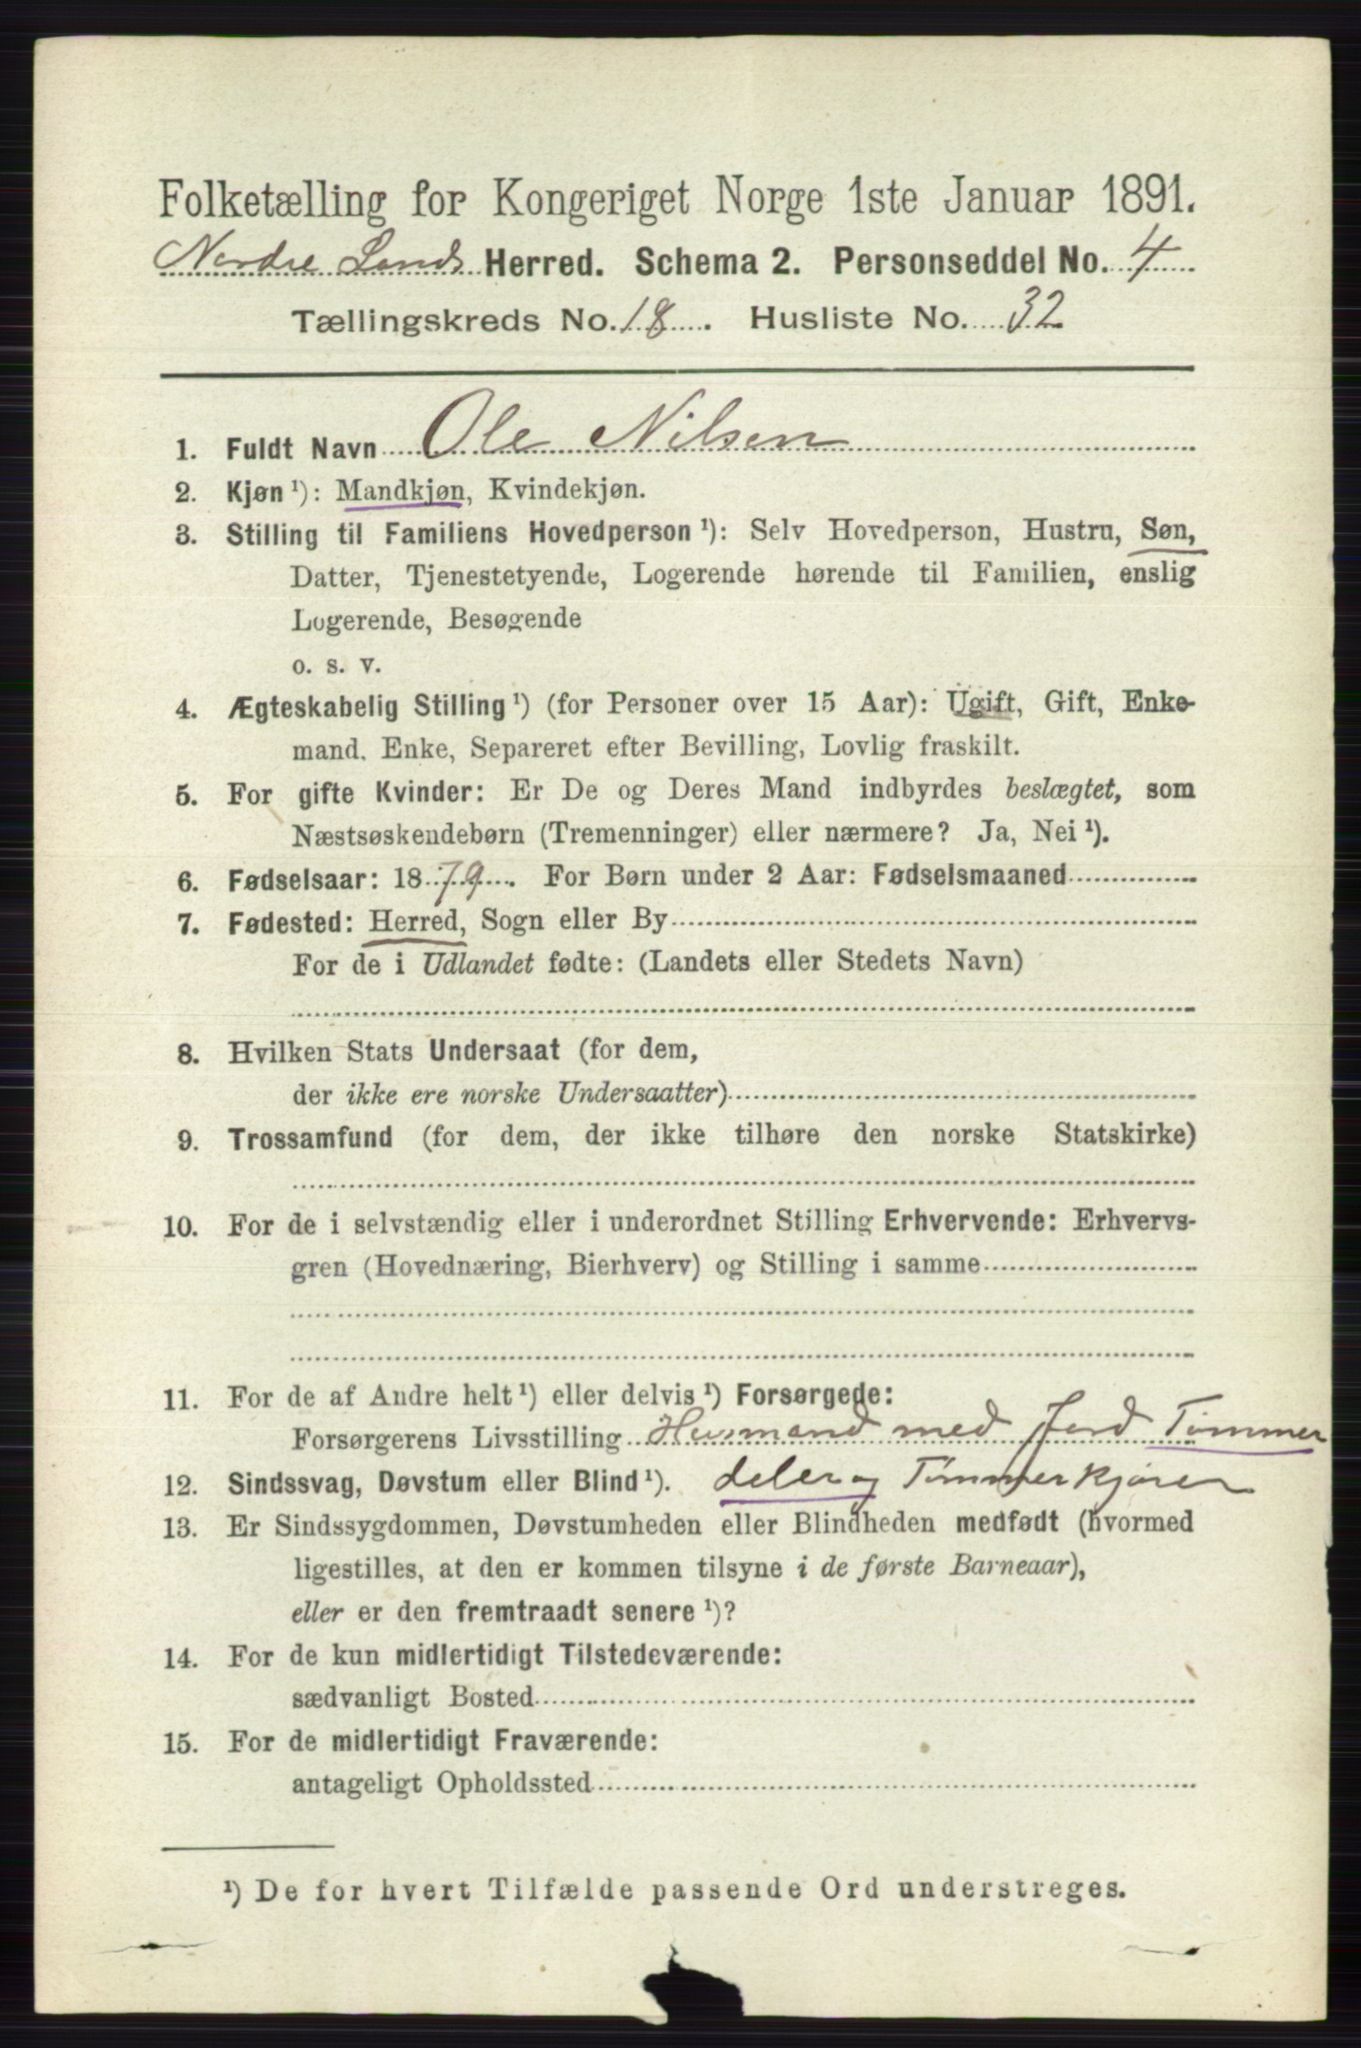 Folketælling for Kongeriget Norge 1ste Januar 1891.
Nordre Lands Herred. Schema 2. Personseddel No. 4
Tællingskreds No. 18. Husliste No. 32
1. Fuldt Navn Ole Nilsen
2. Kjøn ¹): Mandkjøn, Kvindekjøn.
3. Stilling til Familiens Hovedperson ¹): Selv Hovedperson, Hustru, Søn,
Datter, Tjenestetyende, Logerende hørende til Familien, enslig
Logerende, Besøgende
o. s. v.
4. Ægteskabelig Stilling ¹) (for Personer over 15 Aar): Ugift, Gift, Enke-
mand, Enke, Separeret efter Bevilling, Lovlig fraskilt.
5. For gifte Kvinder: Er De og Deres Mand indbyrdes beslægtet, som
Næstsøskendebørn (Tremenninger) eller nærmere? Ja, Nei ¹).
6. Fødselsaar: 1879. For Børn under 2 Aar: Fødselsmaaned
7. Fødested: Herred, Sogn eller By
For de i Udlandet fødte: (Landets eller Stedets Navn)
8. Hvilken Stats Undersaat (for dem,
der ikke ere norske Undersaatter)
9. Trossamfund (for dem, der ikke tilhøre den norske Statskirke)
10. For de i selvstændig eller i underordnet Stilling Erhvervende: Erhvervs-
gren (Hovednæring, Bierhverv) og Stilling i samme
11. For de af Andre helt ¹) eller delvis ¹) Forsørgede:
Forsørgerens Livsstilling Husmand med Jord Tømmer
12. Sindssvag, Døvstum eller Blind ¹). deler og Tømmerkjører
13. Er Sindssygdommen, Døvstumheden eller Blindheden medfødt (hvormed
ligestilles, at den er kommen tilsyne i de første Barneaar),
eller er den fremtraadt senere ¹)?
14. For de kun midlertidigt Tilstedeværende:
sædvanligt Bosted
15. For de midlertidigt Fraværende:
antageligt Opholdssted
¹) De for hvert Tilfælde passende Ord understreges.